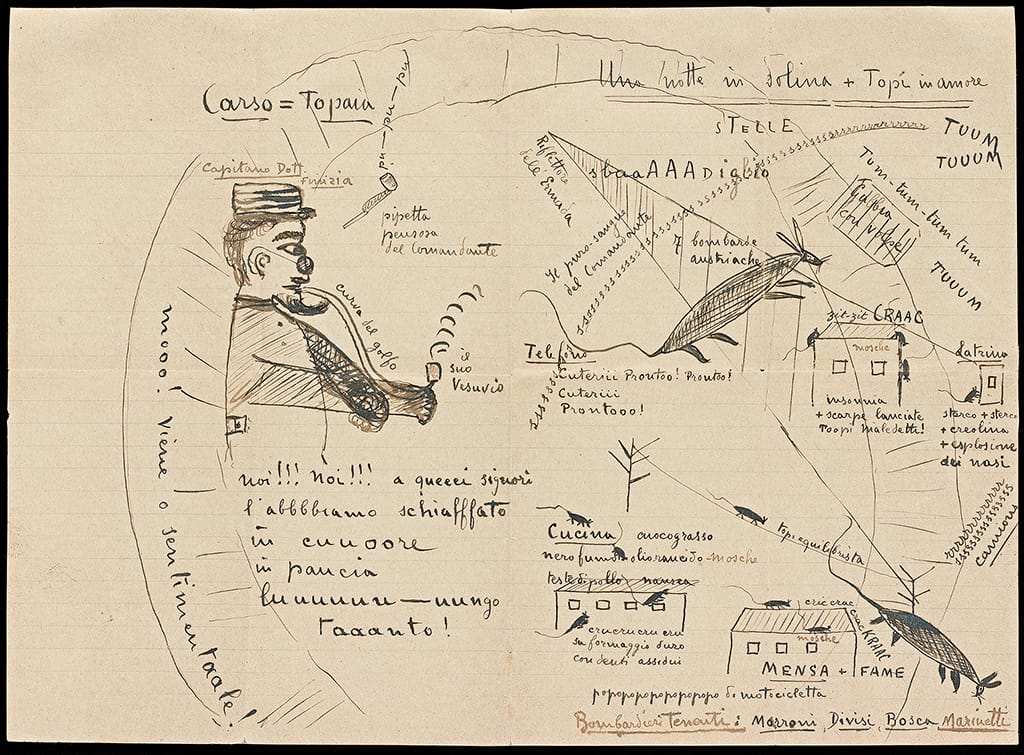 Carso = Topaia
Una notte in dolina + Topi in amore
pu-pu-pu-pu
Capitano Dott.
Finizia
pipetta
pensosa
del Comandante
curva del golfo
il
suo
Vesuvio
mooo! Viene o sentimentaale!
noi!!! Noi!!! a queeci signori
l'abbbbiamo schiaffffato
in cuuoore
in pancia
luuuuuu—uungo
taaanto!
STELLE
ssssssssssssssrrrrrrrrrrrr
TUUM
TUUUM
Riflettore
delle Ermada
sbaaAAADiglio
Tum-tum-tum tum
TUUUM
Gabbia
con volpe
Il puro-sangue
del Comandante
7 bombarde
austriache
Telefono
Cuteriii Prontoo! Prontoo!
Cuteriii
Prontooo!
zit-zit CRAAC
mosche
insonnia
+ scarpe lanciate
Toopi maledetti!
Latrina
sterco + sterco
+ creolina
+ esplosione
dei nasi
rrrrrrrrrrrr
ssssssssssss
camions
topi equilibrista
Cucina cuocograsso
nerofumo oliorancido mosche
teste di pollo nausea
crucrucru cru
su formaggio duro
con denti assidui
cric crac
crac KRAAC
mosche
MENSA + FAME
popopopopopopopo di motocicletta
Bombardieri Tenenti: Marroni, Divisi, Bosca Marinetti